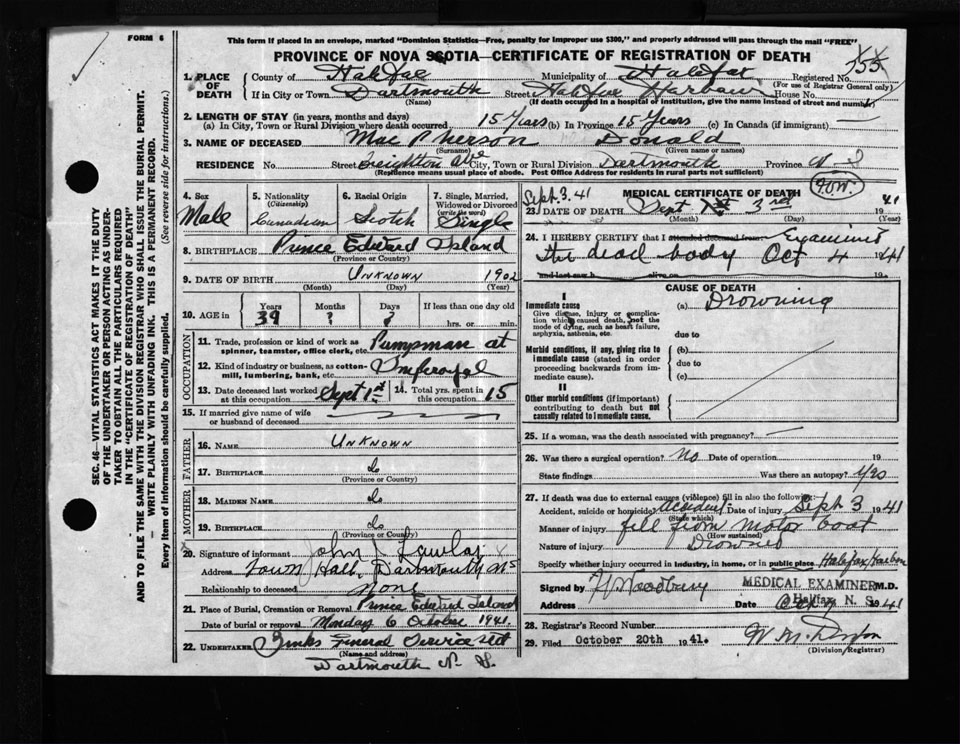 FORM 6
This form if placed in an envelope, marked "Dominion Statistics—Free, penalty for improper use $300," and properly addressed will pass through the mail "FREE"
PROVINCE OF NOVA SCOTIA—CERTIFICATE OF REGISTRATION OF DEATH
1. PLACE OF DEATH
County of Halifax Municipality of Halifax Registered No. 755
(For use of Registrar General only)
If in City or Town Dartmouth Street Halifax Harbour House No.
(Name) (If death occurred in a hospital or institution, give the name instead of street and number)
2. LENGTH OF STAY (in years, months and days)
(a) In City, Town or Rural Division where death occurred 15 Years (b) In Province 15 Years (c) In Canada (if immigrant) —
3. NAME OF DECEASED Mac Pherson Donald
(Surname) (Given name or names)
RESIDENCE No. Street Creighton Ave City, Town or Rural Division Dartmouth Province N S
(Residence means usual place of abode. Post Office Address for residents in rural parts not sufficient)
4. Sex Male
5. Nationality (Citizenship) Canadian
6. Racial Origin Scotch
7. Single, Married, Widowed or Divorced (write the word) Single
8. BIRTHPLACE Prince Edward Island
(Province or Country)
9. DATE OF BIRTH Unknown 1902
(Month) (Day) (Year)
10. AGE in Years 39 Months ? Days ? If less than one day old hrs. or min.
OCCUPATION
11. Trade, profession or kind of work as spinner, teamster, office clerk, etc. Pumpman at
12. Kind of industry or business, as cotton-mill, lumbering, bank, etc. Imferoyal
13. Date deceased last worked at this occupation Sept 1st 14. Total yrs. spent in this occupation 15
15. If married give name of wife or husband of deceased
FATHER
16. NAME Unknown
17. BIRTHPLACE do
(Province or Country)
MOTHER
18. MAIDEN NAME do
19. BIRTHPLACE do
(Province or Country)
20. Signature of informant John J Lawlor
Address Town Hall, Dartmouth NS
Relationship to deceased None
21. Place of Burial, Cremation or Removal Prince Edward Island
Date of burial or removal Monday 6 October 1941.
22. UNDERTAKER Zinks Funeral Service Ltd
(Name and address)
Dartmouth N. S.
Sept. 3. 41
MEDICAL CERTIFICATE OF DEATH
23. DATE OF DEATH Sept 3rd 1941
(Month) (Day) (Year)
24. I HEREBY CERTIFY that I attended deceased from Examined
the dead body Oct 4 1941
and last saw h alive on 19
CAUSE OF DEATH
I
Immediate cause
Give disease, injury or complication which caused death, not the mode of dying, such as heart failure, asphyxia, asthenia, etc.
(a) Drowning
due to
Morbid conditions, if any, giving rise to immediate cause (stated in order proceeding backwards from immediate cause).
(b)
due to
(c)
II
Other morbid conditions (if important) contributing to death but not causally related to immediate cause.
25. If a woman, was the death associated with pregnancy? —
26. Was there a surgical operation? No Date of operation 19
State findings Was there an autopsy? Yes
27. If death was due to external causes (violence) fill in also the following:
Accident, suicide or homicide? Accident Date of injury Sept 3 1941
(State which)
Manner of injury fell from motor boat
(How sustained)
Nature of injury Drowned
Specify whether injury occurred in industry, in home, or in public place Halifax Harbour
Signed by MEDICAL EXAMINER M.D.
Address Halifax, N. S. Date 1941
28. Registrar's Record Number
29. Filed October 20th 1941.
(Division Registrar)
SEC. 46—VITAL STATISTICS ACT MAKES IT THE DUTY OF THE UNDERTAKER OR PERSON ACTING AS UNDERTAKER TO OBTAIN ALL THE PARTICULARS REQUIRED IN THE "CERTIFICATE OF REGISTRATION OF DEATH"
AND TO FILE THE SAME WITH THE DIVISION REGISTRAR WHO SHALL ISSUE THE BURIAL PERMIT.
— WRITE PLAINLY WITH UNFADING INK. THIS IS A PERMANENT RECORD.
Every item of information should be carefully supplied. (See reverse side for instructions.)